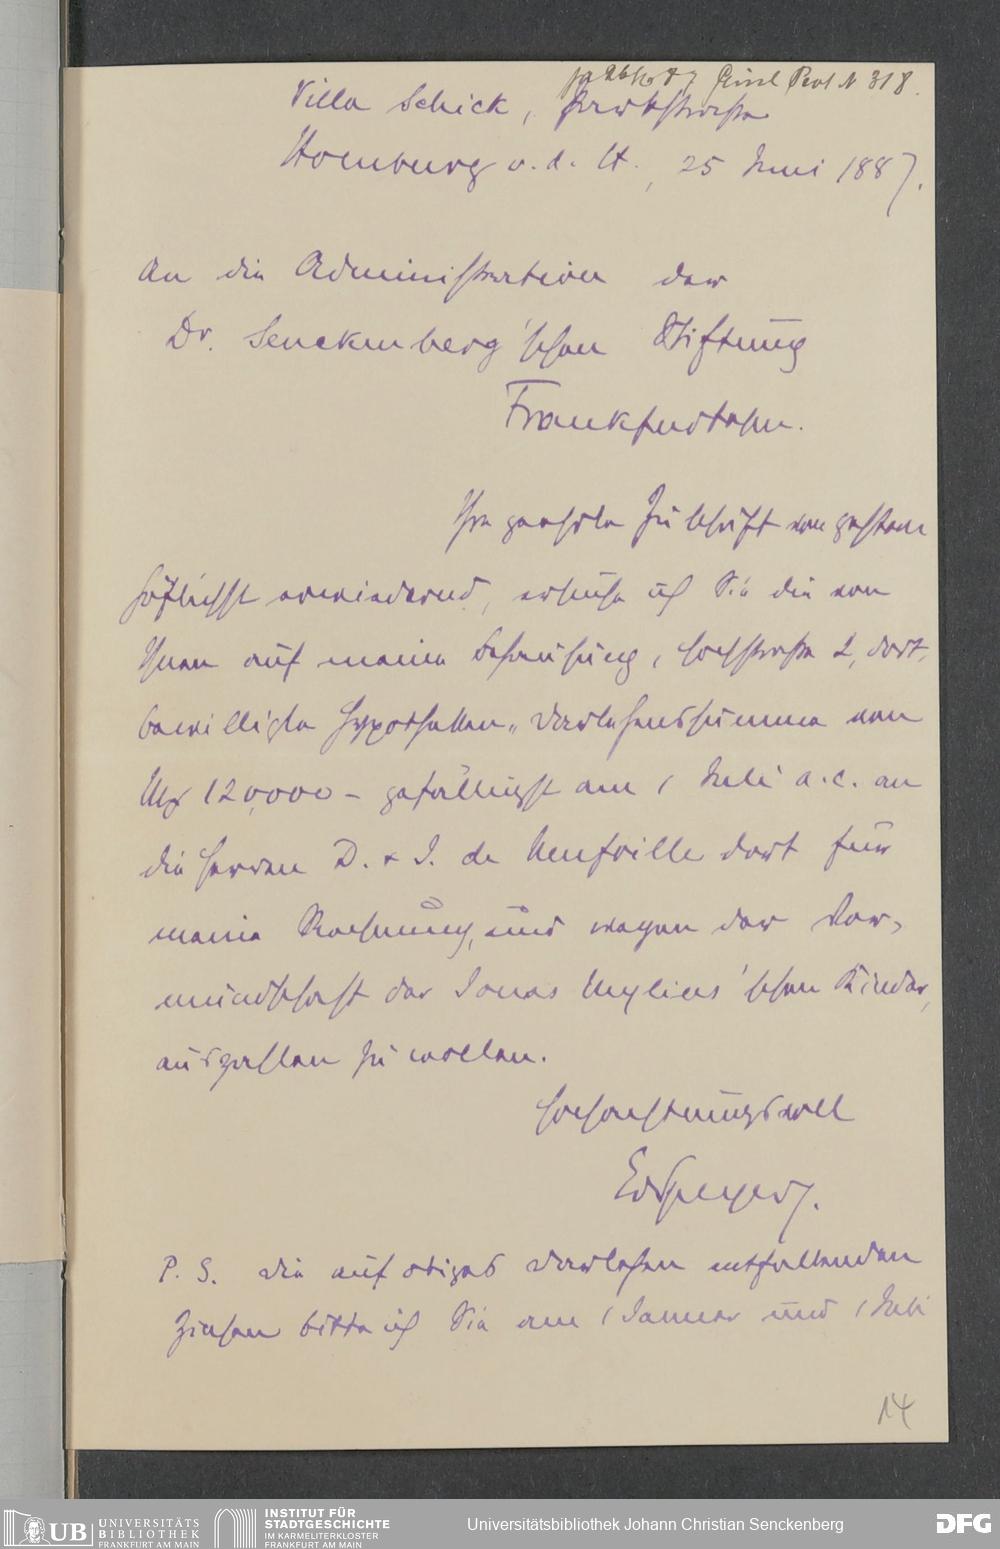 pr 26/6 87 Einl Prot N 318.
Villa Schick, Parkstrasse
Homburg v. d. H., 25 Juni 1887.
An die Administration der
Dr. Senckenberg'schen Stiftung
Frankfurt a/M.
Ihre geehrte Zuschrift von gestern
höflichst erwiedernd, ersuche ich Sie die von
Ihnen auf meine Behausung, Hochstrasse 2, dort,
bewilligte Hypotheken-Darlehenssumme von
Mk 120,000 – gefälligst am 1 Juli a. c. an
die Herren D. & J. de Neufville dort für
meine Rechnung, und wegen der Vor-
mundschaft der Jonas Mylius'schen Kinder,
auszahlen zu wollen.
Hochachtungsvoll
Ed Speyer
P. S. Die auf obiges Darlehen entfallenden
Zinsen bitte ich Sie am 1 Januar und 1 Juli
14
UB UNIVERSITÄTS
BIBLIOTHEK
FRANKFURT AM MAIN
INSTITUT FÜR
STADTGESCHICHTE
IM KARMELITERKLOSTER
FRANKFURT AM MAIN
Universitätsbibliothek Johann Christian Senckenberg
DFG